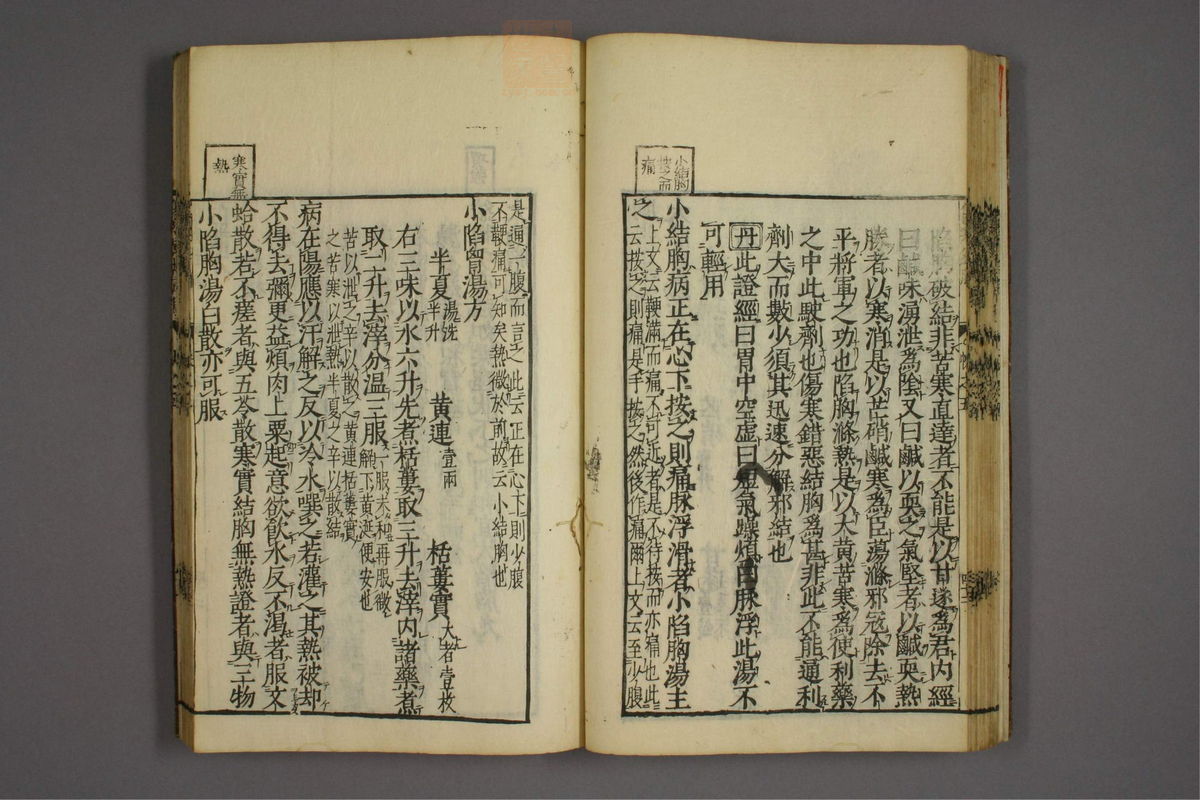 陷胸破結非苦寒直達者不能是以甘遂爲君内經
曰鹹味湧泄爲陰又曰鹹以耎之氣堅者以鹹耎熱
勝者以寒消是以芒硝鹹寒爲臣蕩滌邪冦除去不
平將軍之功也陷胸滌熱是以大黄苦寒爲使利藥
之中此駛劑也傷寒錯惡結胸爲甚非此不能通利
劑大而數少須其迅速分解邪結也
丹此證經曰胃中空虚曰短氣躁煩曰脉浮此湯不
可輕用
小結胸按之而痛
小結胸病正在心下按之則痛脉浮滑者小陷胸湯主
之
上文云鞕滿而痛不可近者是不待按而亦痛也此
云按之則痛是手按之然後作痛爾上文云至少腹
是通一腹而言之此云正在心下則少腹
不鞕痛可知矣熱微於前故云小結胸也
小陷胷湯方
半夏湯洗半升 黄連壹兩 栝蔞實大者壹枚
右三味以水六升先煮栝蔞取三升去滓内諸藥煮
取二升去滓分温三服一服未和再服微解下黄涎便安也
苦以泄之辛以散之黄連栝蔞實
之苦寒以泄熱半夏之辛以散結
病在陽應以汗解之反以冷水噀之若灌之其熱被却
不得去彌更益煩肉上粟起意欲飲水反不渴者服文
寒實無熱
蛤散若不瘥者與五苓散寒實結胸無熱證者與三物
小陷胸湯白散亦可服